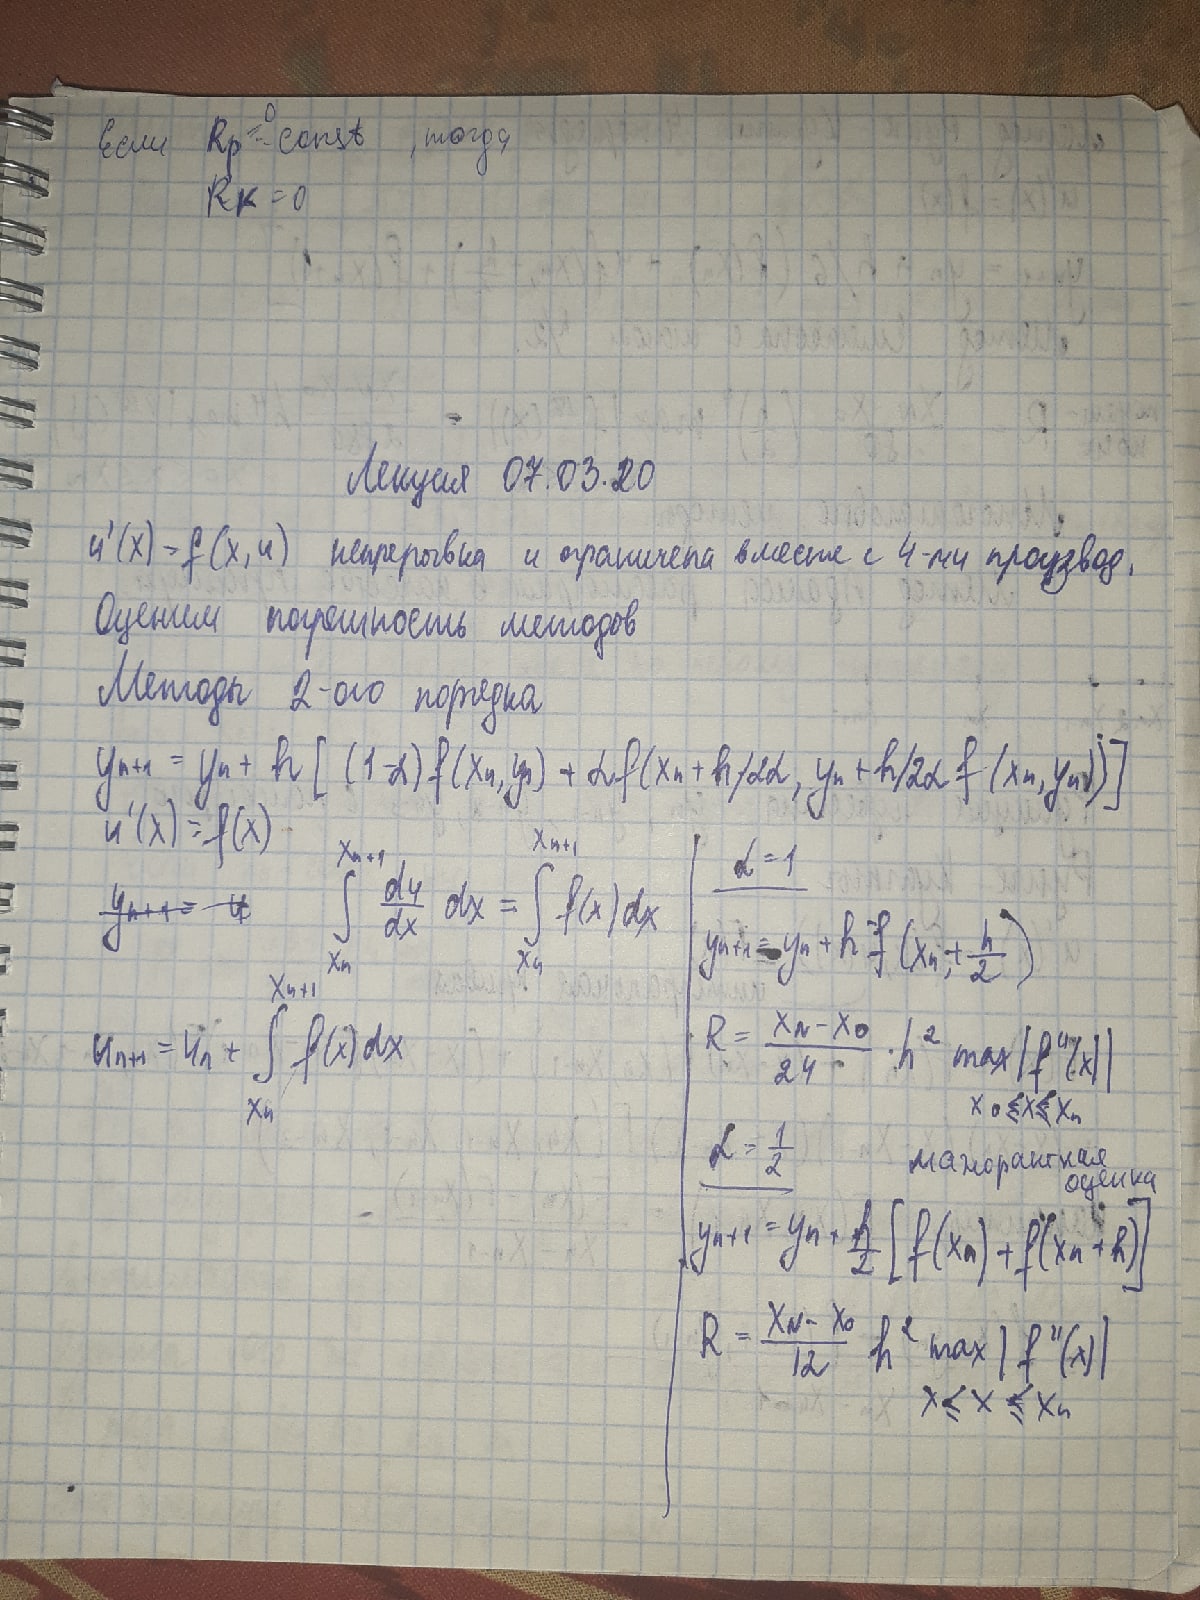 Если Rp = const, тогда
0
Rк = 0
Лекция 07.03.20
u'(x) = f(x, u) непрерывна и ограничена вместе с 4-мя производ.
Оценим погрешность методов
Методы 2-ого порядка
yn+1 = yn + h [ (1-α) f(xn, yn) + αf(xn + h/2α, yn + h/2α f (xn, yn))]
u'(x) = f(x)
yn+1 = u
∫ xn xn+1 du/dx dx = ∫ xn xn+1 f(x)dx
un+1 = un + ∫ xn xn+1 f(x)dx
α = 1
yn+1 = yn + h f (xn + h/2)
R = (xN - x0)/24 · h² max |f''(x)|
x0 ≤ x ≤ xn
мажорантная
оценка
α = 1/2
yn+1 = yn + h/2 [f(xn) + f(xn + h)]
R = (xN - x0)/12 h² max |f''(x)|
x ≤ x ≤ xn